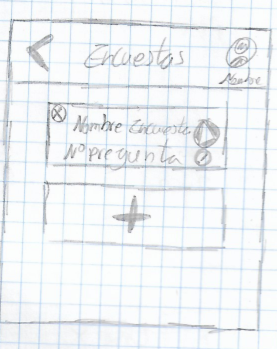 Encuestas
Nombre
Nombre Encuesta
Nº pregunta